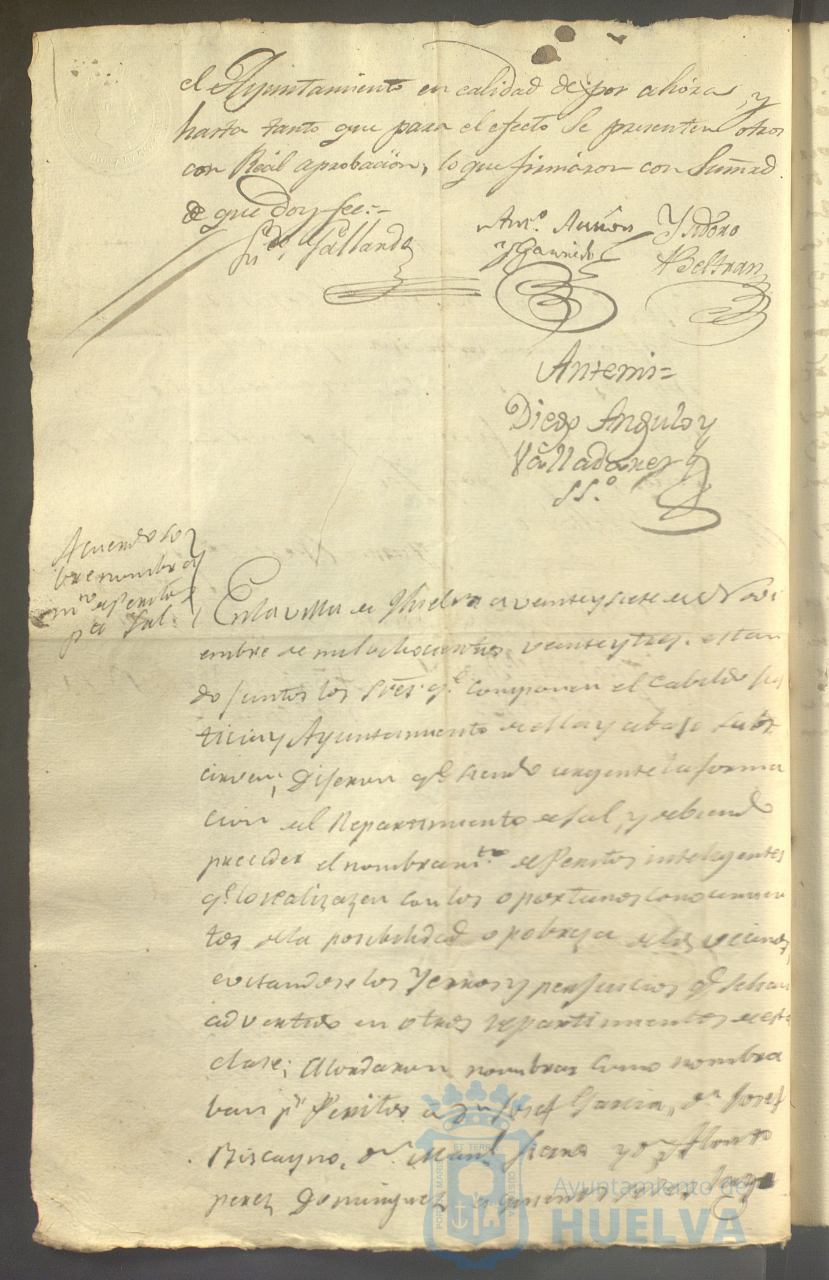 el Ayuntamiento en calidad de por ahora, y
hasta tanto que para el efecto se presenten otros
con Real aprobacion, lo que firmaron con Sumrd.
de que Doy fee:-
Gallardo
Antº. Auñon
y Garrido
Ysidoro
Beltran
Antemi=
Diego Angulo y
Valladares
SS.º
Acuerdo so
bre nombra
mto. de Peritos
pa. Sal.
En la villa de Huelva a veinte y siete de Novi
embre de mil ochocientos veinte y tres. estan
do juntos los Sres. qe. componen el Cabildo Jus
ticia y Ayuntamiento de ella y abajo subs
criven; Dijeron qe. siendo urgente la forma
cion del Repartimiento de sal, y debiendo
preceder el nombramto. de Peritos inteligentes
qe. lo realizazen con los oportunos conocimien
tos de la posibilidad o pobreza de los vecinos,
evitandose los Yerros y perjuicios qe. se han
advertido en otros repartimientos de esta
clase; Acordaron nombrar como nombra
ban pr. Peritos a Dn. Josef Garcia, Dn. Josef
Biscayno, Dn. Manl. y Dn. Alonso
perez Dominguez a quienes se les haga
PORTUS MARIS ET TERRAE CUSTODIA
Ayuntamiento de
HUELVA